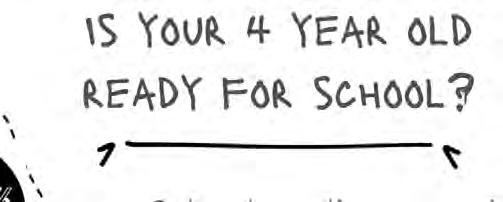 IS YOUR 4 YEAR OLD
READY FOR SCHOOL?